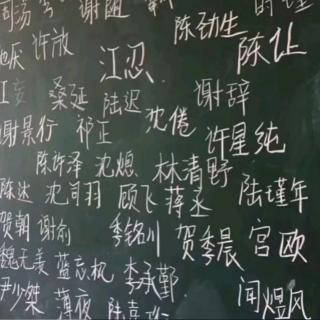 谢随
陈劲生 时瑾
许放 江忍 陈让
桑延 陆迟 谢辞
谢景行 祁正 沈倦 许星纯
陈许泽 沈熄 林清野
陈达 沈司羽 顾飞 蒋丞 陆瑾年
贺朝 谢俞 季铭川 贺季晨 宫欧
魏无羡 蓝忘机 李承鄞
尹少桀 薄夜 闻煜风